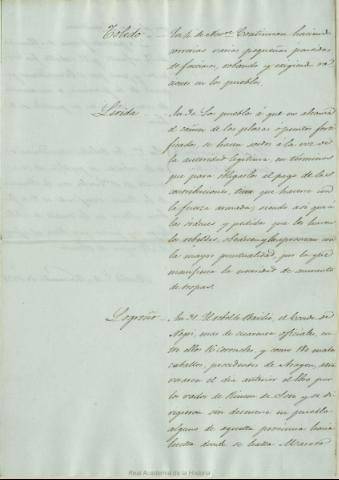 Toledo — En 4 de Nov.e Continuan haciendo
correrias varias pequeñas partidas
de facciosos, robando y exigiendo ra-
ciones en los pueblos.
Lérida — En 30. Los pueblos á que no alcanza
el cañon de las plazas ó puntos forti-
ficados, se hacen sordos á la voz de
la autoridad legitima, en términos
que para obligarlos al pago de las
contribuciones tiene que hacerse con
la fuerza armada; siendo asi que á
las órdenes y pedidos que les hacen
los rebeldes, obedecen y los aprontan con
la mayor puntualidad, por lo que
manifiesta la necesidad de aumento
de tropas.
Logroño — En 31. Basilio, el Conde de
Negri, mas de cuarenta oficiales, en-
tre ellos 16 coroneles, y como 180
caballos, procedentes de Aragon, atra-
vesaron el dia anterior el Ebro por
los vados de Rincon de Soto y se di-
rigieron sin detenerse en pueblo
alguno de aquella provincia hacia
donde se halla
Real Academia de la Historia